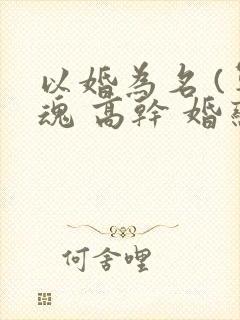 以婚為名(
魂 高幹 婚
何舍哩